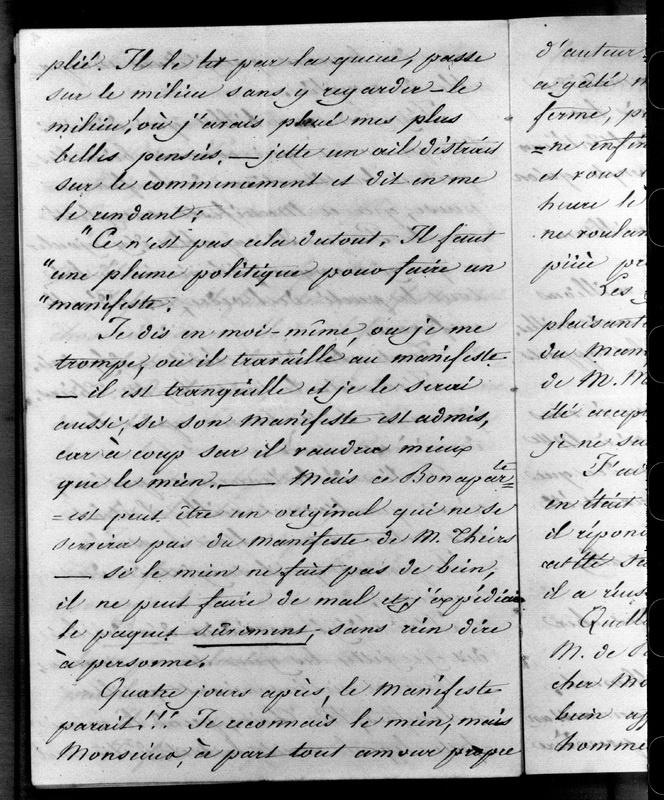 plié. Il le lut par la queue, passe
sur le milieu sans y regarder — le
milieu! où j'avais placé mes plus
belles pensées. — jette un œil distrait
sur le commencement et dit en me
le rendant:
"Ce n'est pas cela du tout. Il faut
"une plume politique pour faire un
"manifeste.
Je dis en moi-même, ou je me
trompe, ou il travaille au manifeste
— il est tranquille et je le serai
aussi, si son manifeste est admis,
car à coup sur il vaudra mieux
que le mien. — Mais ce Bonaparte
=est peut être un original qui ne se
servira pas du manifeste de M. Thiers
— si le mien ne fait pas de bien,
il ne peut faire de mal et j'expédiai
le paquet sûrement, sans rien dire
à personne.
Quatre jours après, le Manifeste
parait!!! Je reconnais le mien, mais
Monsieur, à part tout amour propre
d'auteur
a gâté m
ferme, p
=ne enfin
et vous
heure le
ne roulan
pitié pr
Les
plaisant
du Man
de M. M
été accep
je ne su
J'av
en était
il répon
il a réus
Quell
M. de B
cher Mo
bien a
homme